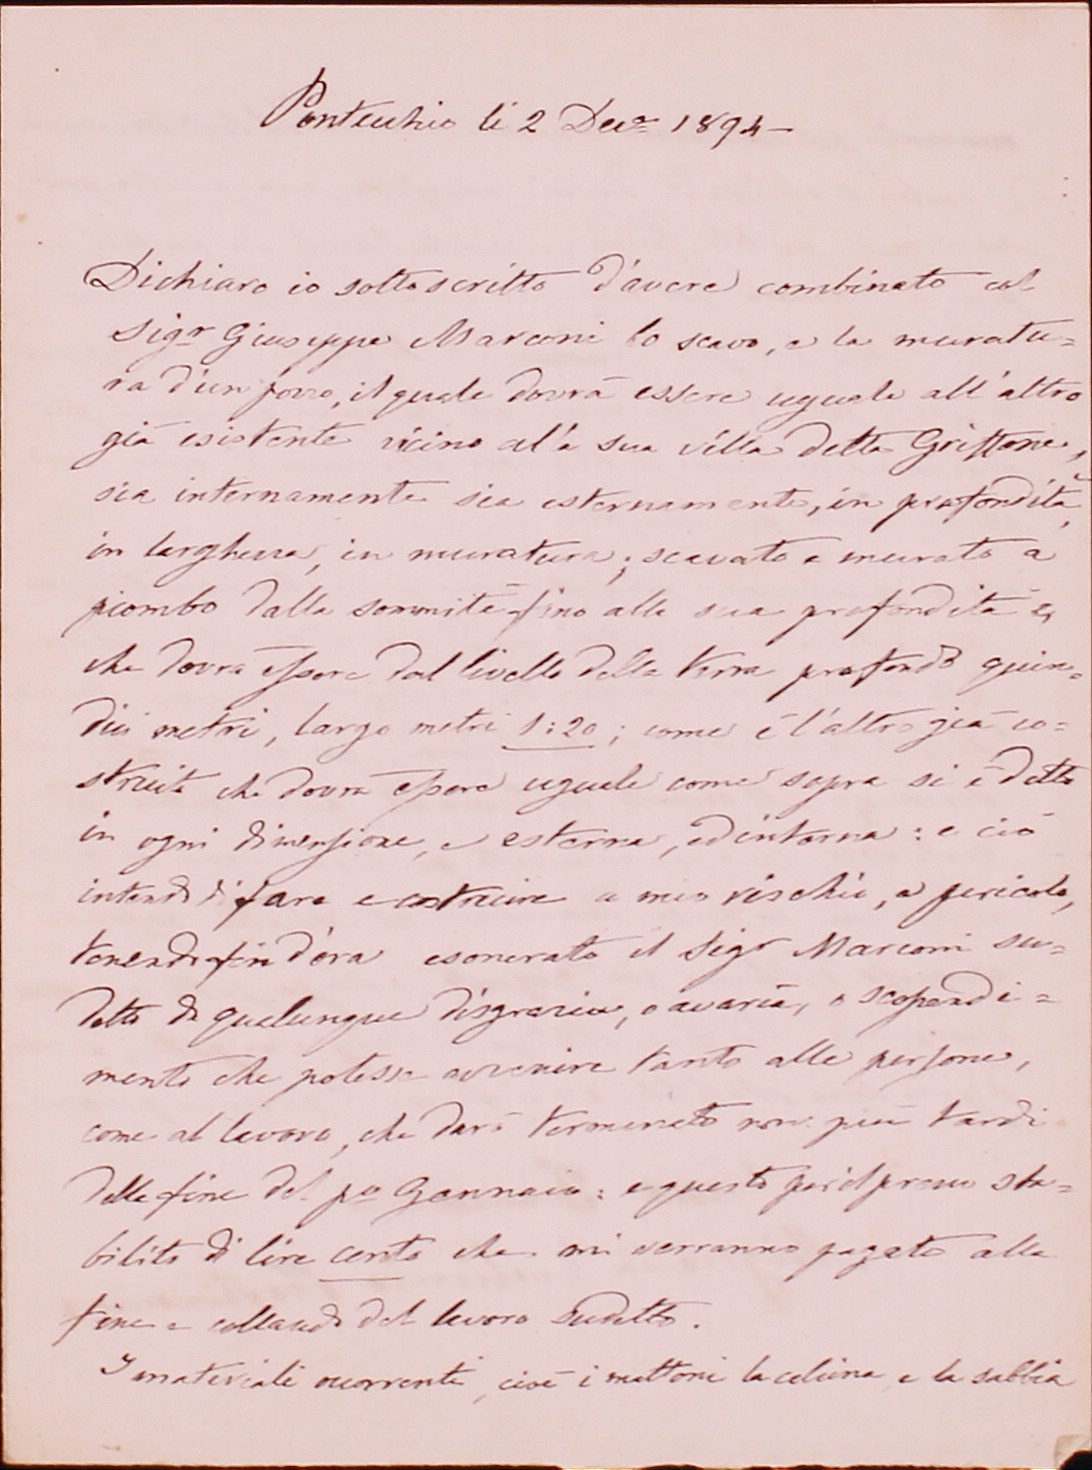 Pontecchio li 2 Dec.e 1894 –
Dichiaro io sottoscritto d'avere combinato col
Sigr Giuseppe Marconi lo scavo, e la muratu=
ra d'un pozzo, il quale dovrà essere uguale all'altro
già esistente vicino al'a sua villa detta Griffone,
sia internamente sia esternamente, in profondità,
in larghezza, in muratura; scavato e murato a
piombo dalla sommità fino alla sua profondità
che dovra essere dal livello della terra profondo quin=
dici metri, largo metri 1:20; come è l'altro già co=
struito che dovra essere uguale come sopra si è detto
in ogni dimensione, e esterna, ed interna: e ciò
intendo di fare e costruire a mio rischio, a pericolo,
tenendo fin d'ora esonerato il Sigr Marconi su=
detto da qualunque disgrazia, o avaria, o scoscendi=
mento che potesse avvenire tanto alle persone,
come al lavoro, che darò terminato non più tardi
della fine del po Gennaio: e questo per il prezzo sta=
bilito di lire cento che mi verranno pagate alla
fine e collaudo del lavoro sudetto.
I materiali occorrenti, cioè i mattoni la calcina e la sabbia